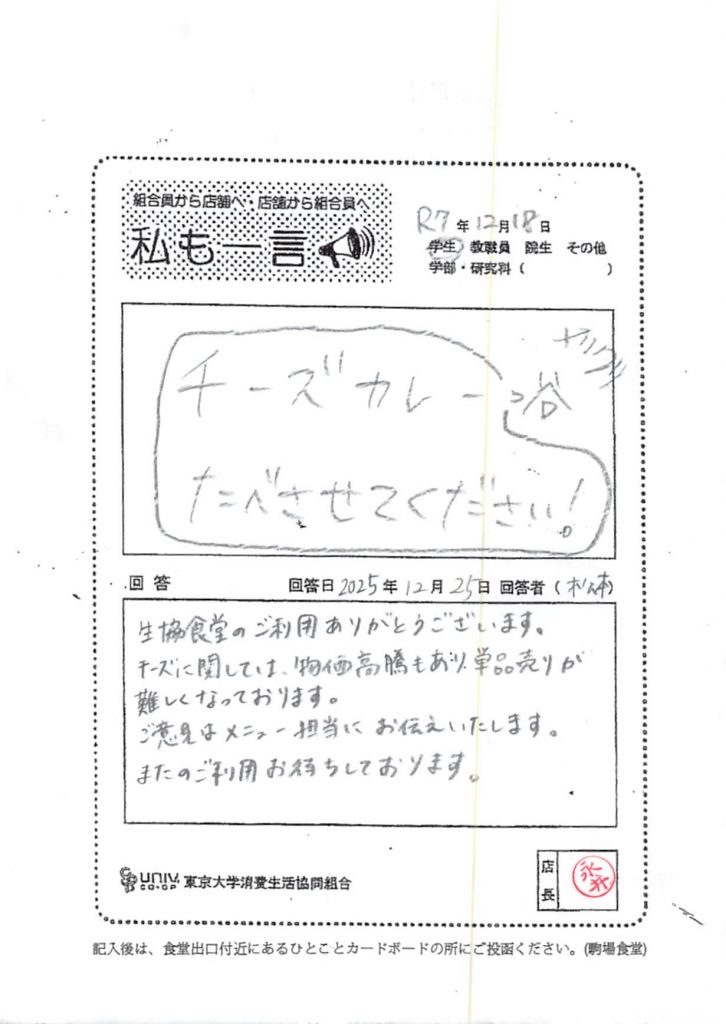 組合員から店舗へ・店舗から組合員へ
私も一言
R7年12月18日
学生 教職員 院生 その他
学部・研究科( )
チーズカレー
たべさせてください!
回答 回答日2025年12月25日 回答者(松本)
生協食堂のご利用ありがとうございます。
チーズに関しては、物価高騰もあり、単品売りが
難しくなっております。
ご意見はメニュー担当にお伝えいたします。
またのご利用お待ちしております。
UNIV. CO-OP 東京大学消費生活協同組合
店長
記入後は、食堂出口付近にあるひとことカードボードの所にご投函ください。(駒場食堂)